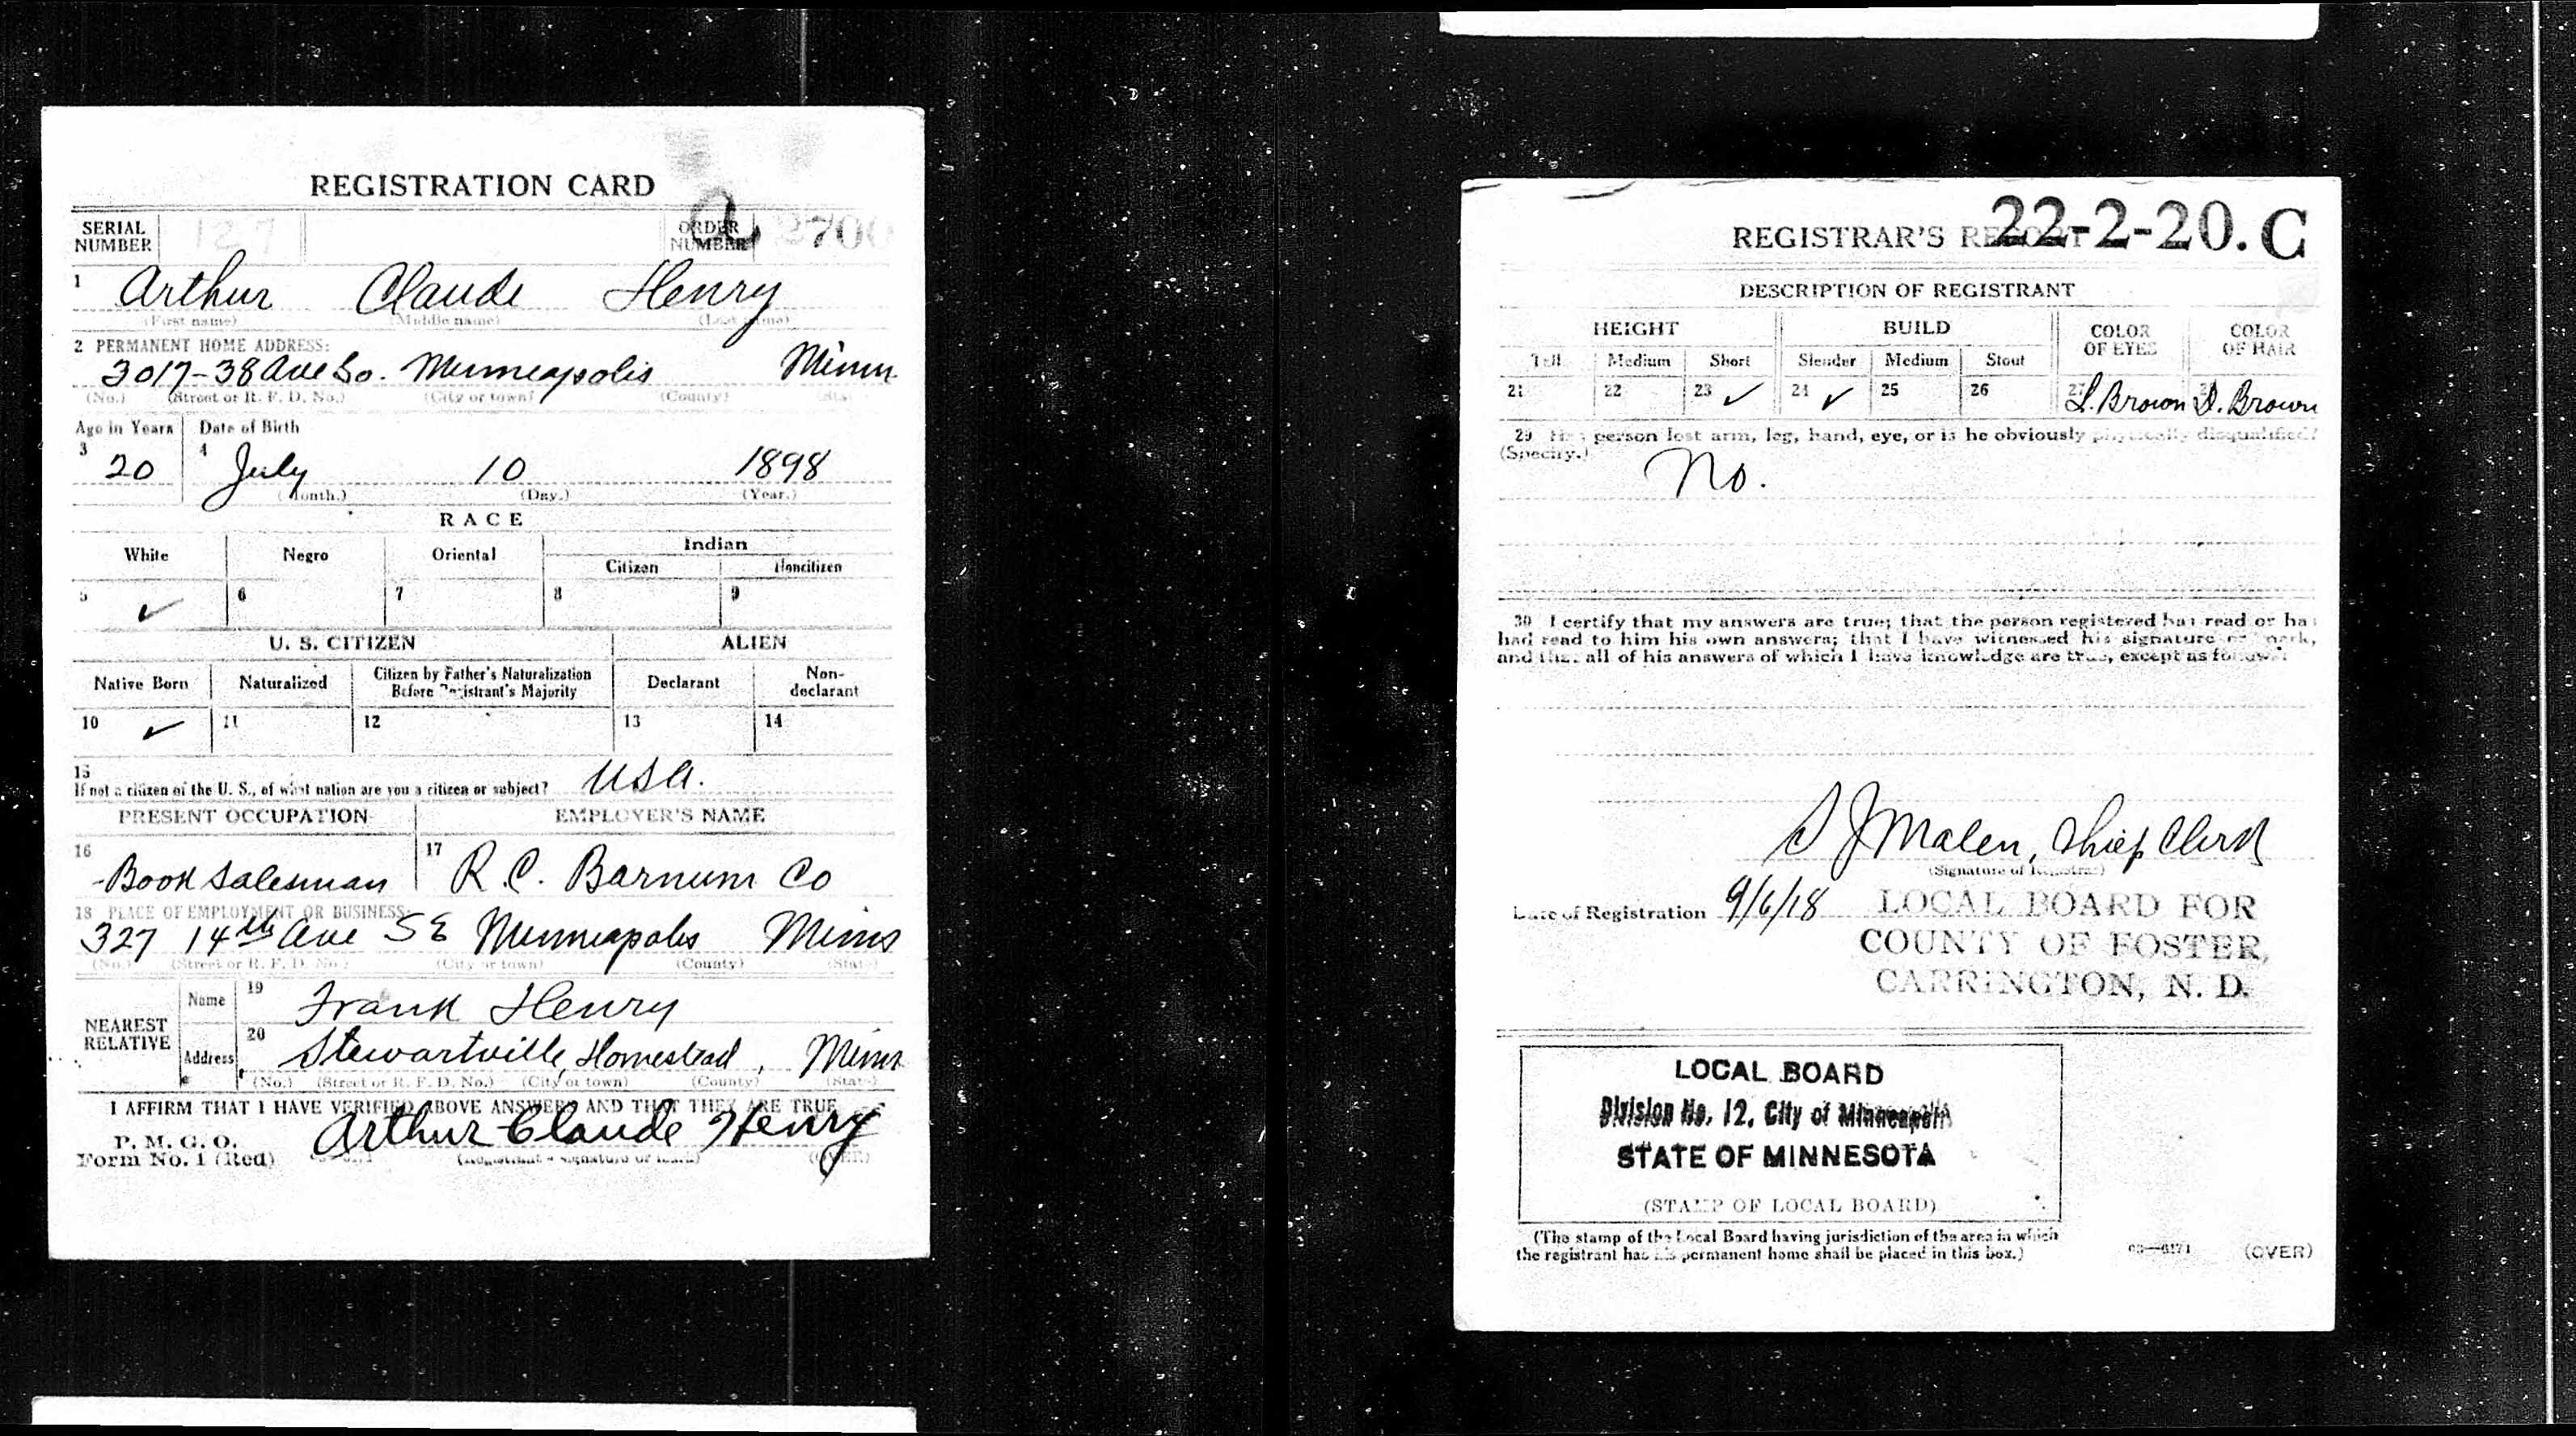 REGISTRATION CARD
SERIAL NUMBER 127 ORDER NUMBER A 2700
1 Arthur Claude Henry
(First name) (Middle name) (Last name)
2 PERMANENT HOME ADDRESS:
3017-38 Ave So. Minneapolis Minn
(No.) (Street or R. F. D. No.) (City or town) (County) (State)
Age in Years Date of Birth
3 20 4 July 10 1898
(Month.) (Day.) (Year.)
RACE
White Negro Oriental Indian
Citizen Noncitizen
5 ✓ 6 7 8 9
U. S. CITIZEN ALIEN
Native Born Naturalized Citizen by Father's Naturalization Before Registrant's Majority Declarant Non-declarant
10 ✓ 11 12 13 14
15
If not a citizen of the U. S., of what nation are you a citizen or subject? USA.
PRESENT OCCUPATION EMPLOYER'S NAME
16 Book Salesman 17 R. C. Barnum Co
18 PLACE OF EMPLOYMENT OR BUSINESS:
327 14th Ave SE Minneapolis Minn
(No.) (Street or R. F. D. No.) (City or town) (County) (State)
NEAREST RELATIVE
Name 19 Frank Henry
Address 20 Stewartville, Homestead, Minn
(No.) (Street or R. F. D. No.) (City or town) (County) (State)
I AFFIRM THAT I HAVE VERIFIED ABOVE ANSWERS AND THAT THEY ARE TRUE
P. M. G. O.
Form No. 1 (Red) Arthur Claude Henry
(Registrant's signature or mark) (OVER)
REGISTRAR'S REPORT 22-2-20. C
DESCRIPTION OF REGISTRANT
HEIGHT BUILD COLOR OF EYES COLOR OF HAIR
Tall Medium Short Slender Medium Stout
21 22 23 ✓ 24 ✓ 25 26 27 L. Brown D. Brown
29 Has person lost arm, leg, hand, eye, or is he obviously physically disqualified?
(Specify.) No.
30 I certify that my answers are true; that the person registered has read or has
had read to him his own answers; that I have witnessed his signature or mark,
and that all of his answers of which I have knowledge are true, except as follows:
S J Malen, Chief Clerk
(Signature of Registrar)
Date of Registration 9/6/18
LOCAL BOARD FOR
COUNTY OF FOSTER,
CARRINGTON, N. D.
LOCAL BOARD
Division No. 12, City of Minneapolis
STATE OF MINNESOTA
(STAMP OF LOCAL BOARD)
(The stamp of the Local Board having jurisdiction of the area in which
the registrant has his permanent home shall be placed in this box.)
03—6171 (OVER)